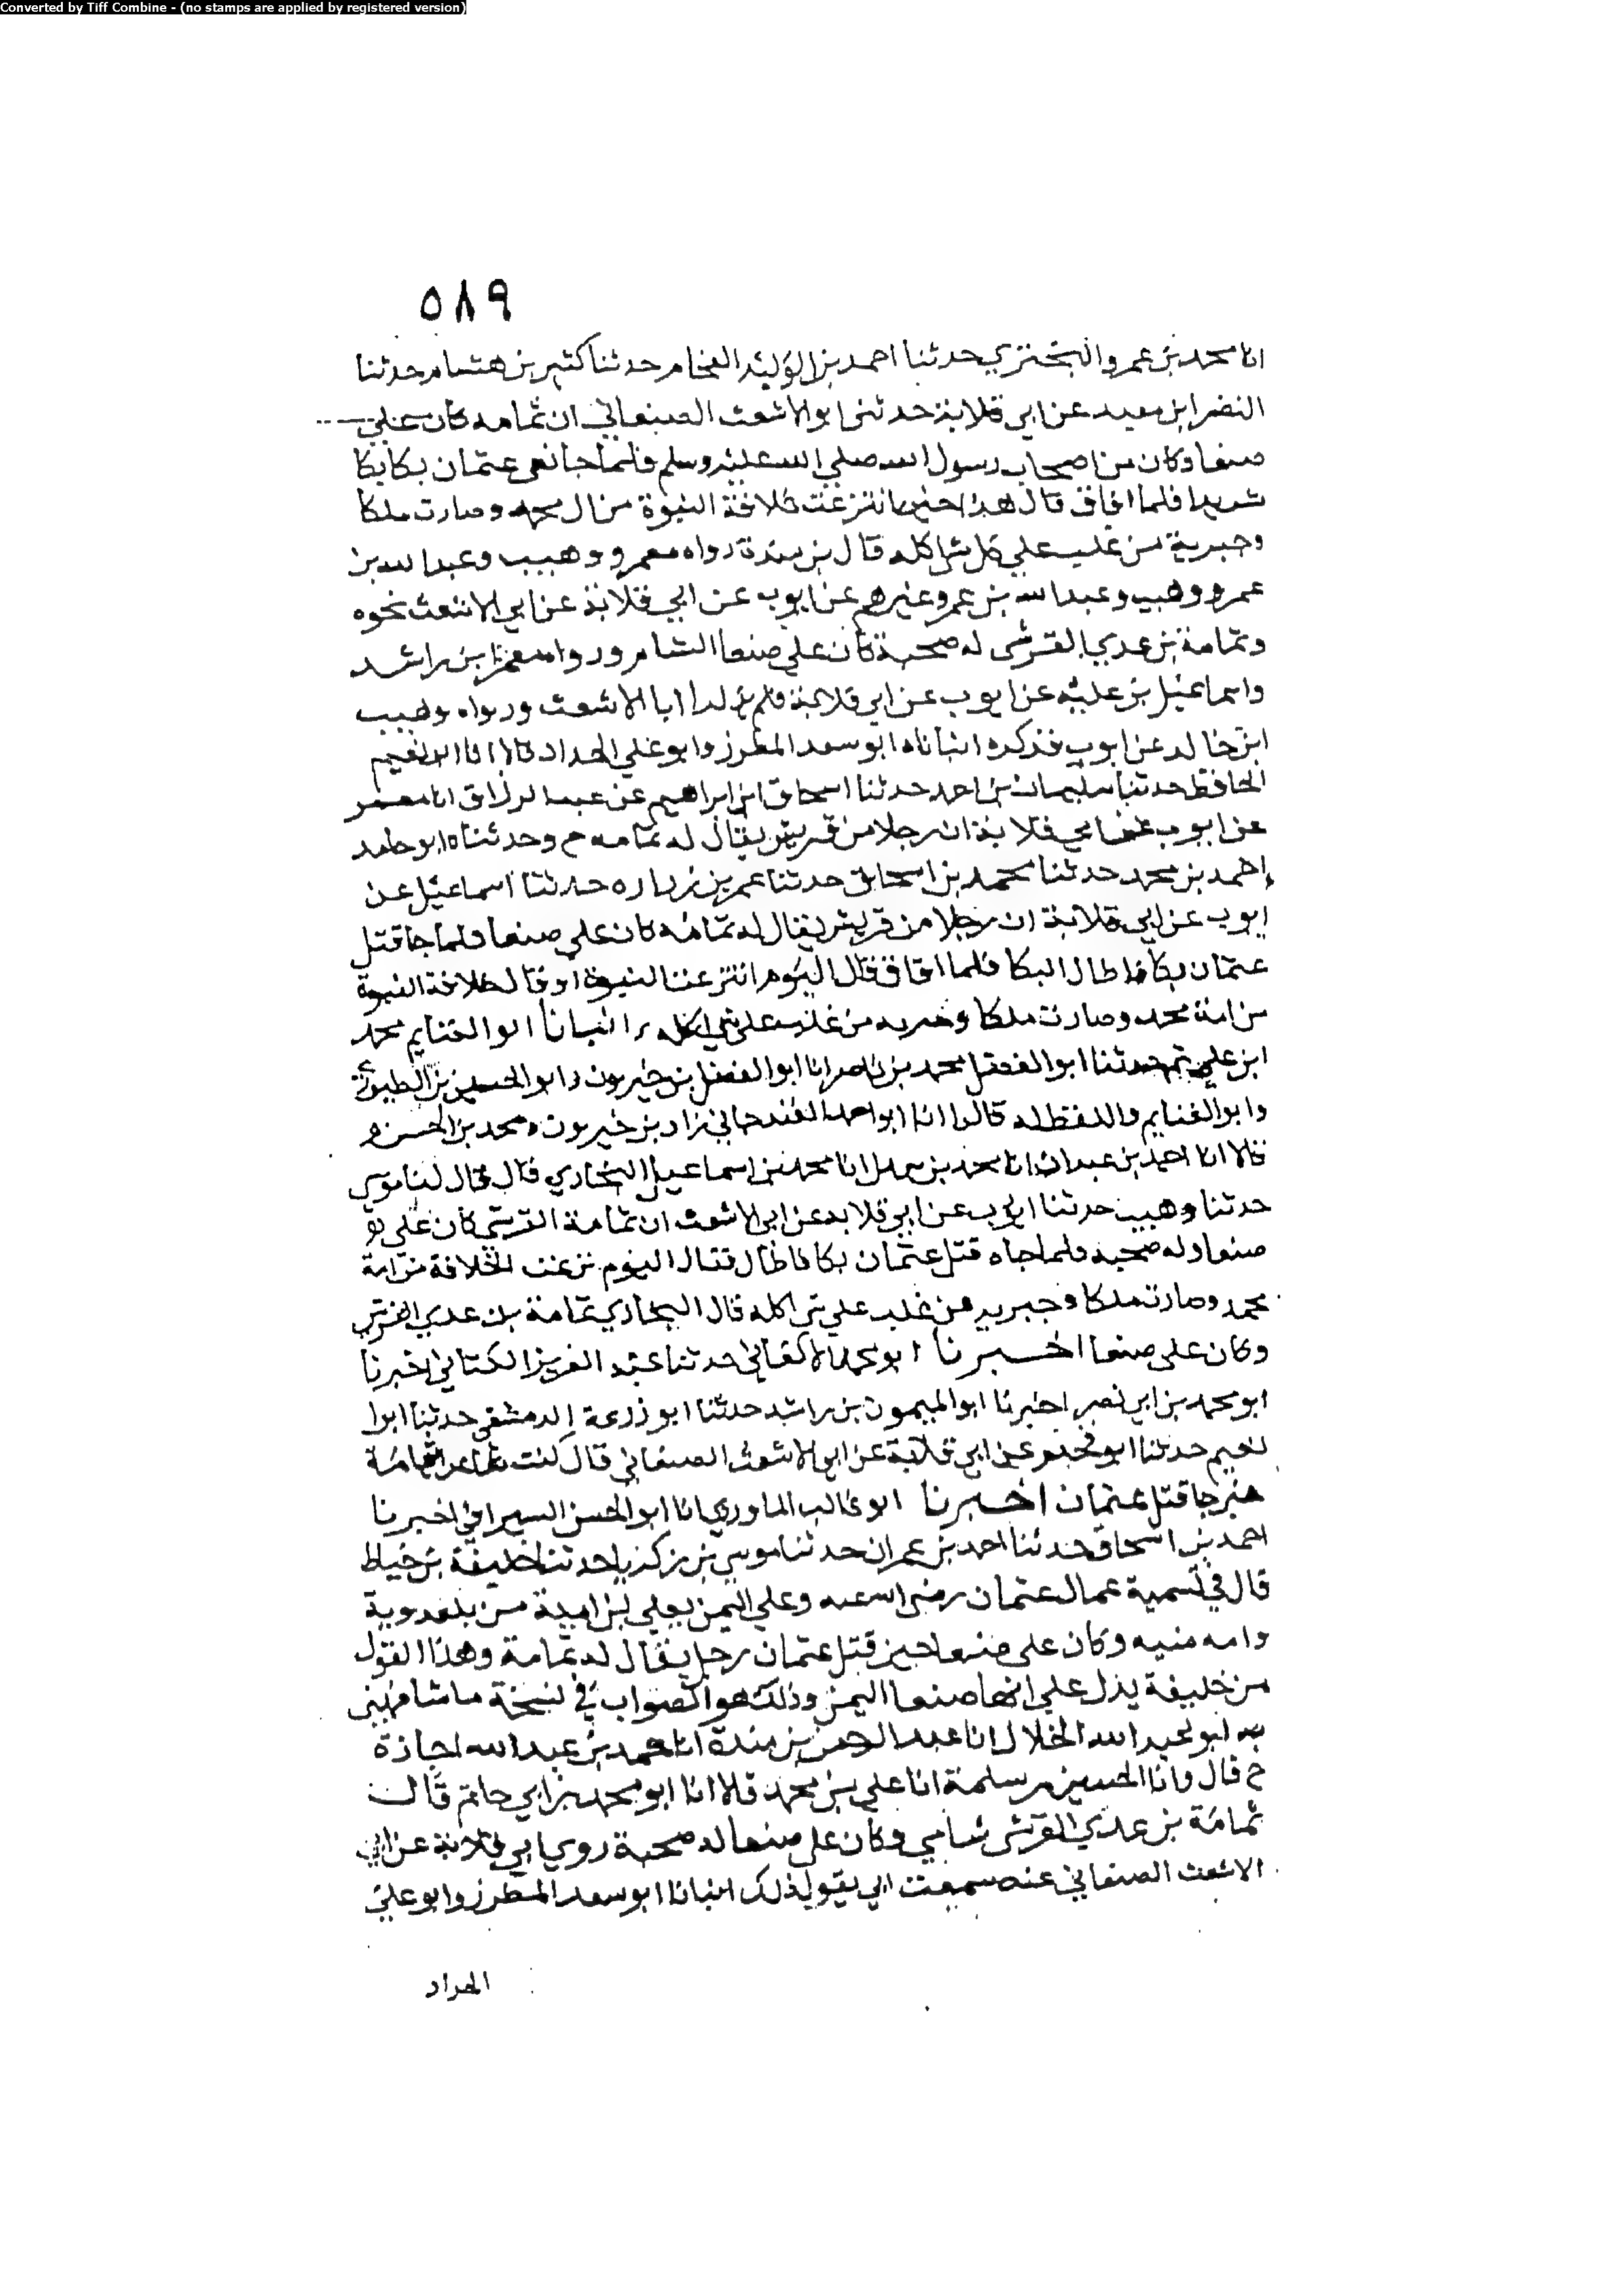 Converted by Tiff Combine - (no stamps are applied by registered version)
٥٨٩
انا محمد بن عمرو البختري حدثنا احمد بن الوليد الفحام حدثنا كثير بن هشام حدثنا
النضر ابن معبد عن ابي قلابة حدثني ابو الاشعث الصنعاني ان ثمامه كان علي
صنعا وكان من اصحاب رسول الله صلي الله عليه وسلم فلما جا نعي عثمان بكا بكا
شديدا فلما افاق قال هذا حين انتزعت خلافة النبوة من ال محمد وصارت ملكا
وجبرية من غلب علي كل شي اكله قال بن مندة رواه معمر ووهيب وعبد الله بن
عمرو ووهيب وعبد الله بن عمرو وغيرهم عن ايوب عن ابي قلابة عن ابي الاشعث نحوه
وثمامة بن عدي القرشي له صحبة كان علي صنعا الشام ورواه معمر ابن راشد
واسماعيل بن علية عن ايوب عن ابي قلابة فلم ابا الاشعث ورواه وهيب
ابن خالد عن ايوب فذكره انباناه ابو سعد المطرز وابو علي الحداد قالا انا ابو نعيم
الحافظ حدثنا سليمان بن احمد حدثنا اسحاق ابن ابراهيم عن عبد الرزاق انا معمر
عن ايوب عن ابي قلابة ان رجلا من قريش يقال له ثمامه ح وحدثناه ابو حامد
احمد بن محمد حدثنا محمد بن اسحاق حدثنا عمر بن زراره حدثنا اسماعيل عن
ايوب عن ابي قلابة ان رجلا من قريش يقال له ثمامه كان علي صنعا فلما جا قتل
عثمان بكا فاطال البكا فلما افاق قال اليوم انتزعت النبوة او قال خلافة النبوة
من امة محمد وصارت ملكا وجبريه من غلب علي شي اكله انبانا ابو الغنايم محمد
ابن علي ثم حدثنا ابو الفضل محمد بن ناصر انا ابو الفضل بن خيرون وابو الحسين بن الطيوري
وابو الغنايم واللفظ له قالوا انا ابو احمد الغندجاني زاد بن خيرون ومحمد بن الحسن
قالا انا احمد بن عبدان انا محمد بن سهل انا محمد بن اسماعيل البخاري قال قال لنا موسى
حدثنا وهيب حدثنا ايوب عن ابي قلابه عن ابي الاشعث ان ثمامة القرشي كان علي
صنعا وله صحبه فلما جاه قتل عثمان بكا فاطال فقال اليوم نزعت الخلافة من امة
محمد وصارت ملكا وجبريه من غلب علي شي اكله قال البخاري ثمامة بن عدي القرشي
وكان علي صنعا اخبرنا ابو محمد الاكفاني حدثنا عبد العزيز الكتاني اخبرنا
ابو محمد بن ابي نصر اخبرنا ابو الميمون بن راشد حدثنا ابو زرعة الدمشقي حدثنا ابوا
نعيم حدثنا ابو عن ابي قلابة عن ابي الاشعث الصنعاني قال كنت ثمامة
جا قتل عثمان اخبرنا ابو غالب الماوردي انا ابو الحسن السيرافي اخبرنا
احمد بن اسحاق حدثنا احمد بن عمران حدثنا موسي بن زكريا حدثنا خليفة بن خياط
قال في تسمية عمال عثمان رضي الله عنه وعلي اليمن يعلي بن امية من بلعدوية
وامه منيه وكان علي صنعا حين قتل عثمان رجل يقال له ثمامة وهذا القول
من خليفة يدل علي انها صنعا اليمن وذلك هو الصواب في نسخة ما شافهني
به ابو عبد الله الخلال انا عبد الرحمن بن مندة انا حمد بن عبد الله اجازة
ح قال وانا الحسين بن سلمة انا علي بن محمد قالا انا ابو محمد بن ابي حاتم قال
ثمامة بن عدي القرشي شامي وكان علي صنعا له صحبة روي ابي قلابة عن ابي
الاشعث الصنعاني عنه سمعت ابي يقول ذلك انبانا ابو سعد المطرز وابو علي
الحداد